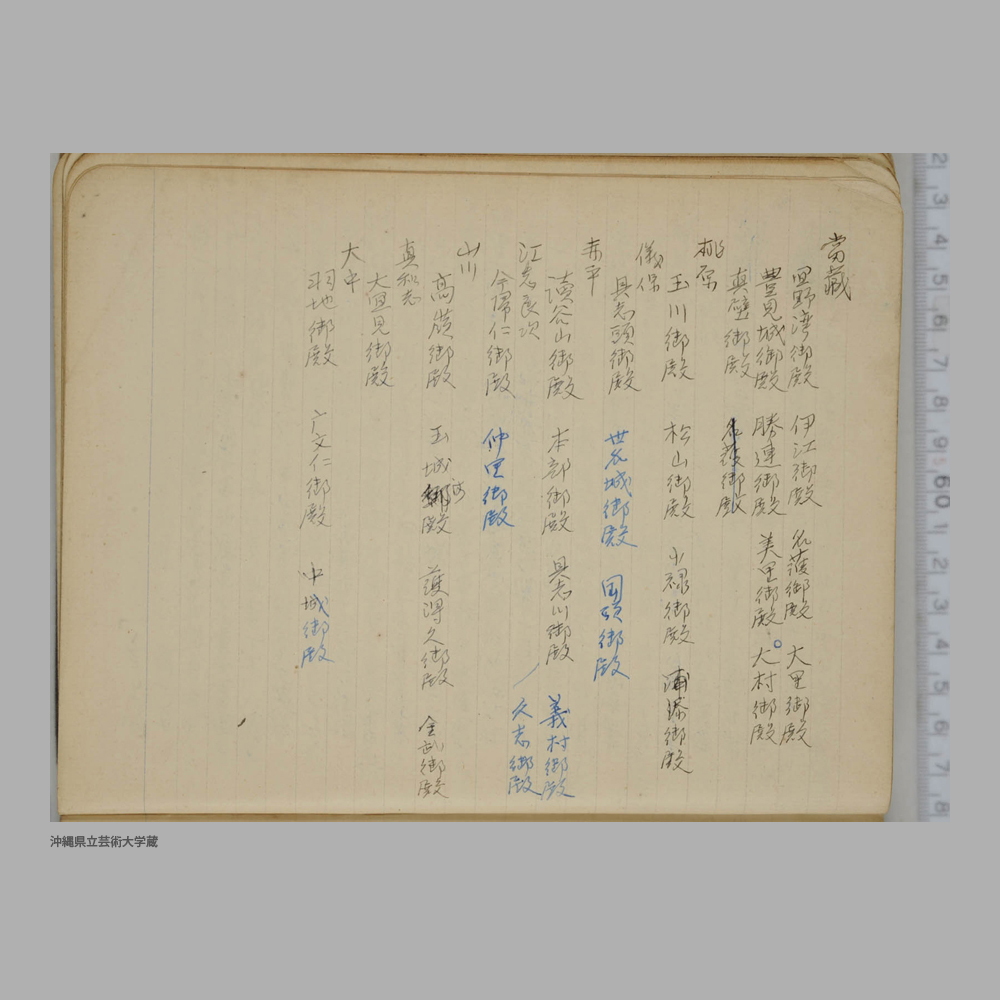 當蔵
宜野湾御殿 伊江御殿 名護御殿 大里御殿
豊見城御殿 勝連御殿 美里御殿 大村御殿
真壁御殿 名護御殿
桃原
玉川御殿 松山御殿 小禄御殿 浦添御殿
儀保
具志頭御殿 世名城御殿 国頭御殿
赤平
讀谷山御殿 本部御殿 具志川御殿 義村御殿
久志御殿
江志良次
今帰仁御殿 仲里御殿
山川
高嶺御殿 玉城御殿 護得久御殿 金武御殿
真和志
大宜見御殿
大中
羽地御殿 广文仁御殿 中城御殿
沖縄県立芸術大学蔵